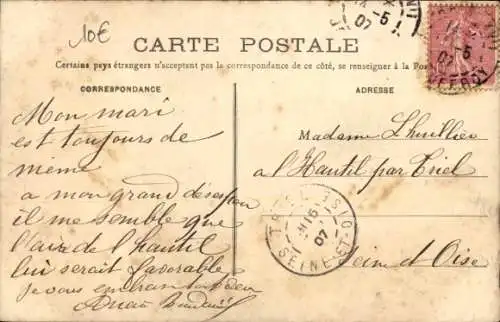 10€
14 -5 07
14 -5 07
CARTE POSTALE
Certains pays étrangers n'acceptent pas la correspondance de ce côté, se renseigner à la Poste
CORRESPONDANCE
Mon mari
est toujours de
meme
a mon grand desespoir
il me semble que
l'air de l'hautil
lui serait favorable
je vous embrasse
ADRESSE
Madame Lhuillier
a l'Hautil par Triel
Seine et Oise
TRIEL
16
07
SEINE-ET-OISE